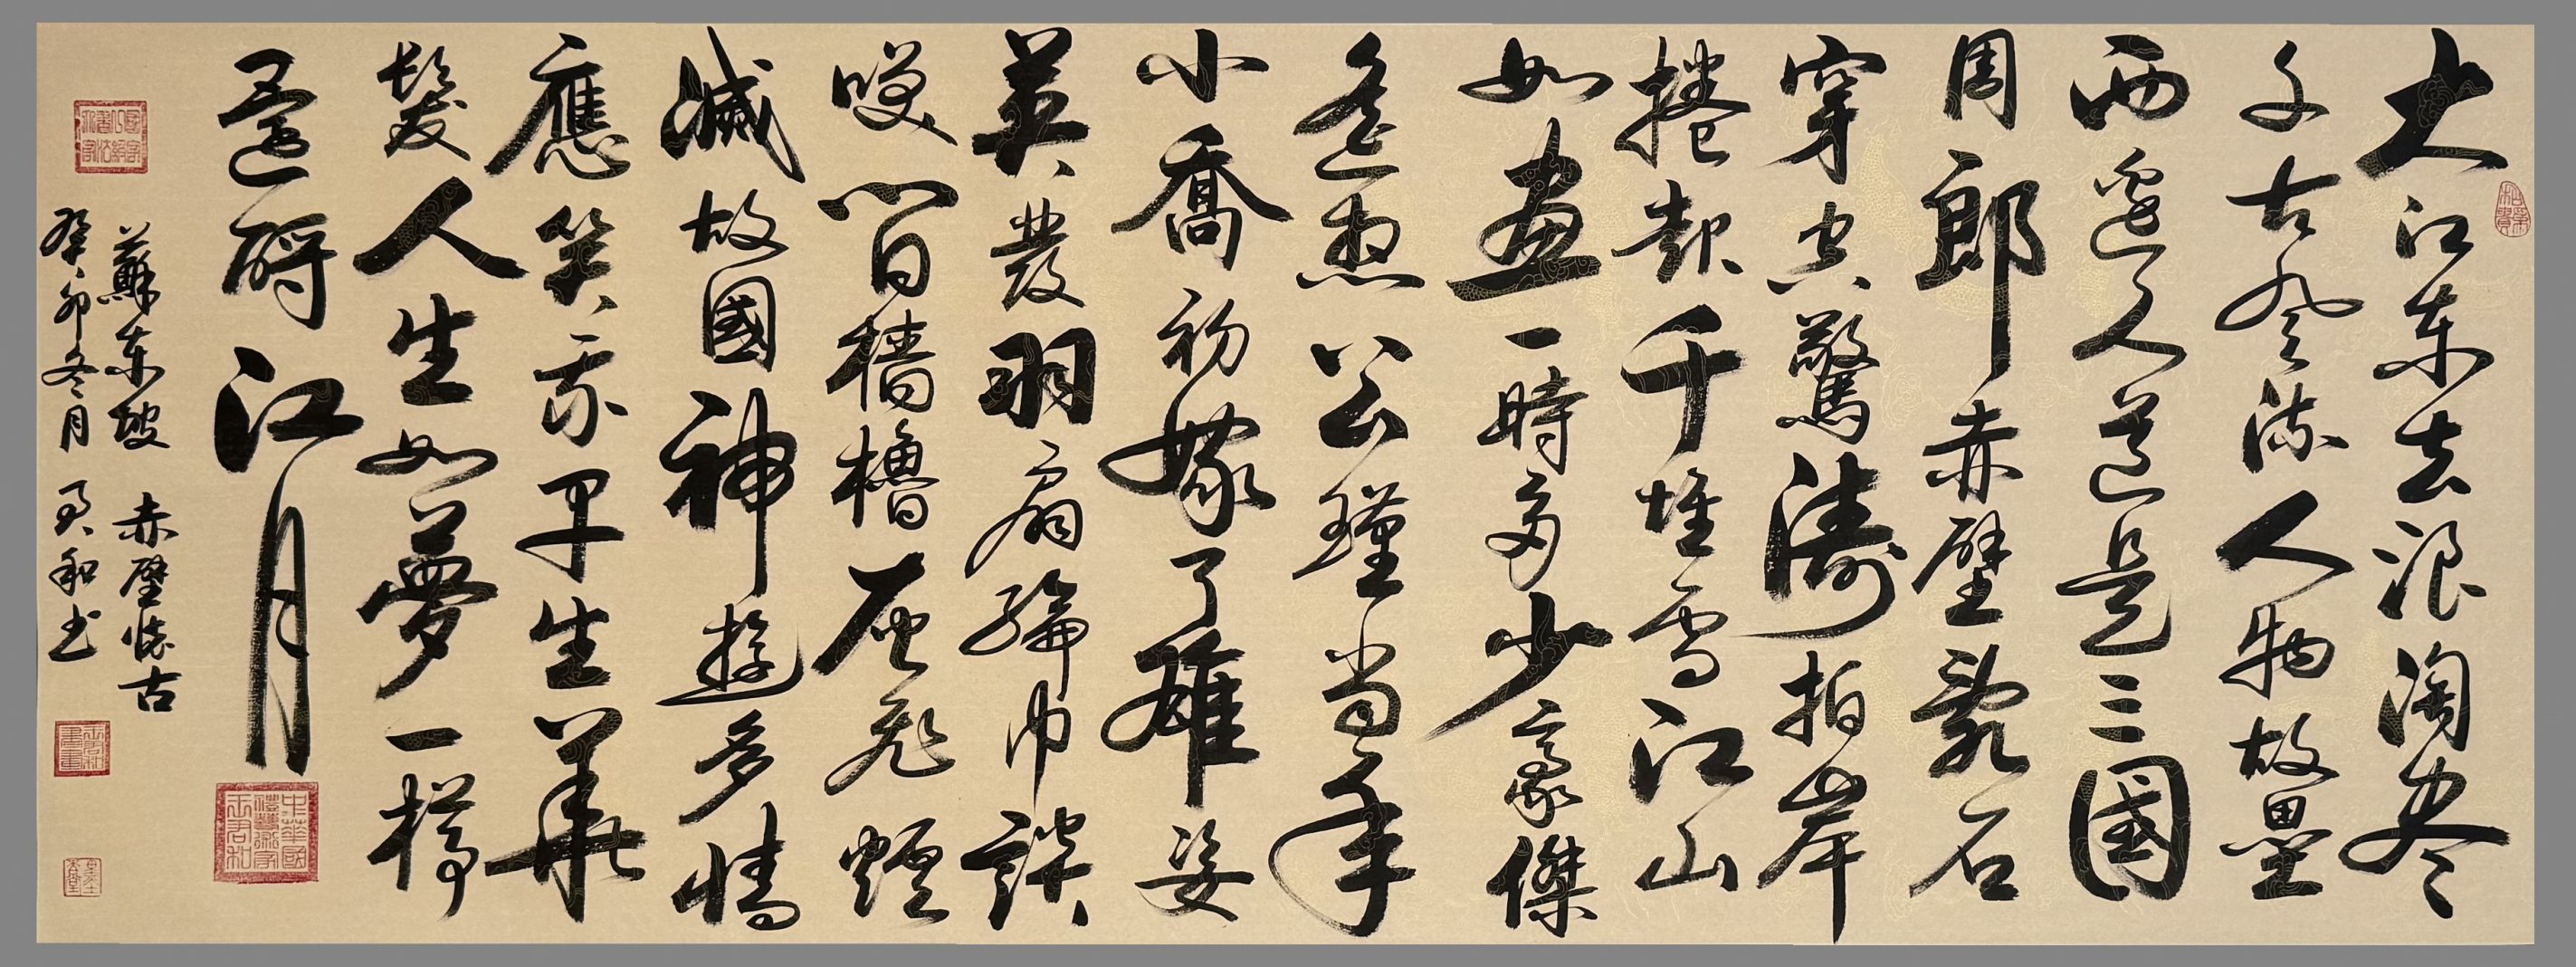 大江東去浪淘尽
千古風流人物故壘
西邊人道是三國
周郎赤壁亂石
穿空驚濤拍岸
捲起千堆雪江山
如畫一時多少豪傑
遙想公瑾當年
小喬初嫁了雄姿
英發羽扇綸巾談
咲間檣櫓灰飛煙
滅故國神遊多情
應笑我早生華
髮人生如夢一樽
還酹江月
蘇東坡 赤壁懷古
癸卯冬月 君和书
中華國禮藝術家王君和